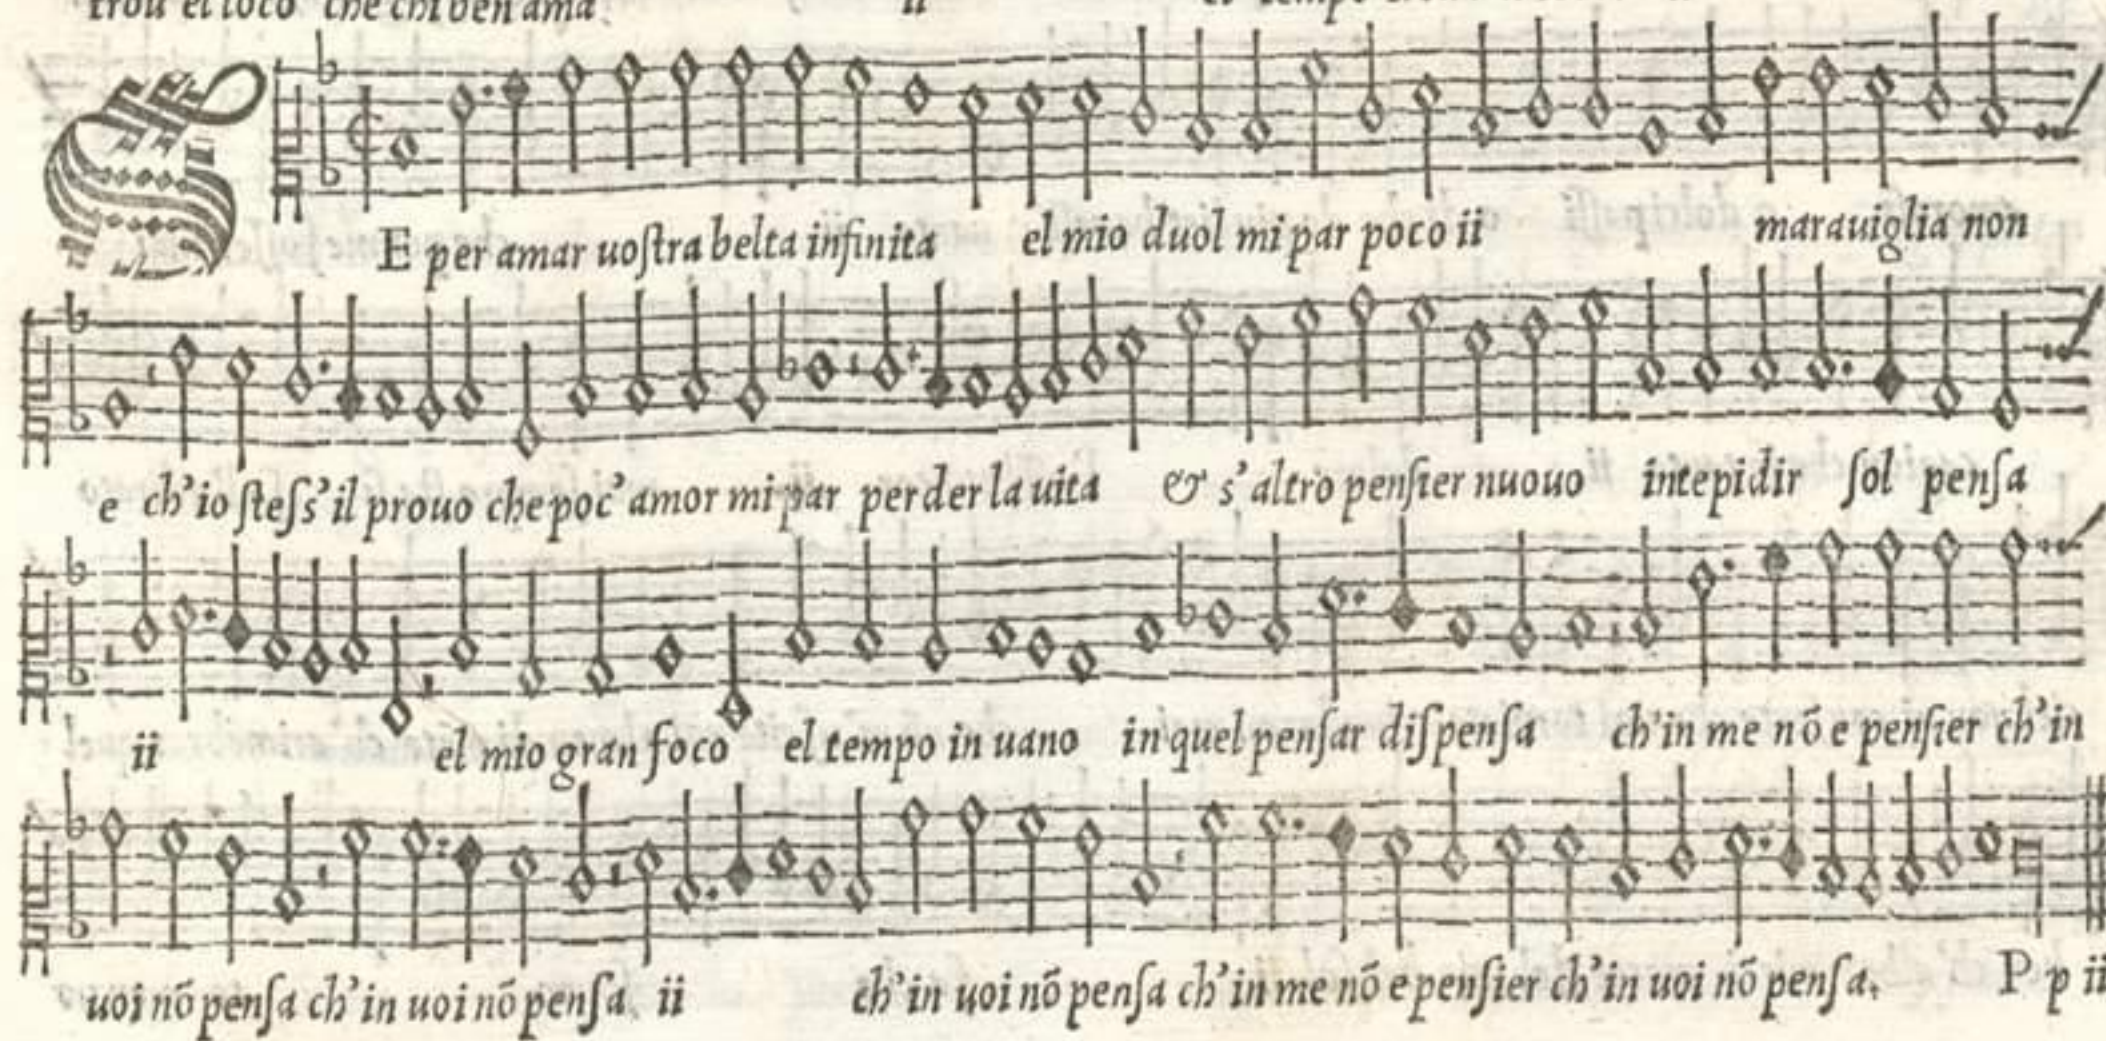 trou el loco che chi ben ama
SE per amar uoſtra belta infinita el mio duol mi par poco ii marauiglia non
e ch'io ſteſs'il prouo che poc'amor mi par perder la uita & s'altro penſier nuouo intepidir ſol penſa
ii el mio gran foco el tempo in uano in quel penſar diſpenſa ch'in me nō e penſier ch'in
uoi nō penſa ch'in uoi nō penſa. ii ch'in uoi nō penſa ch'in me nō e penſier ch'in uoi nō penſa. P p ii